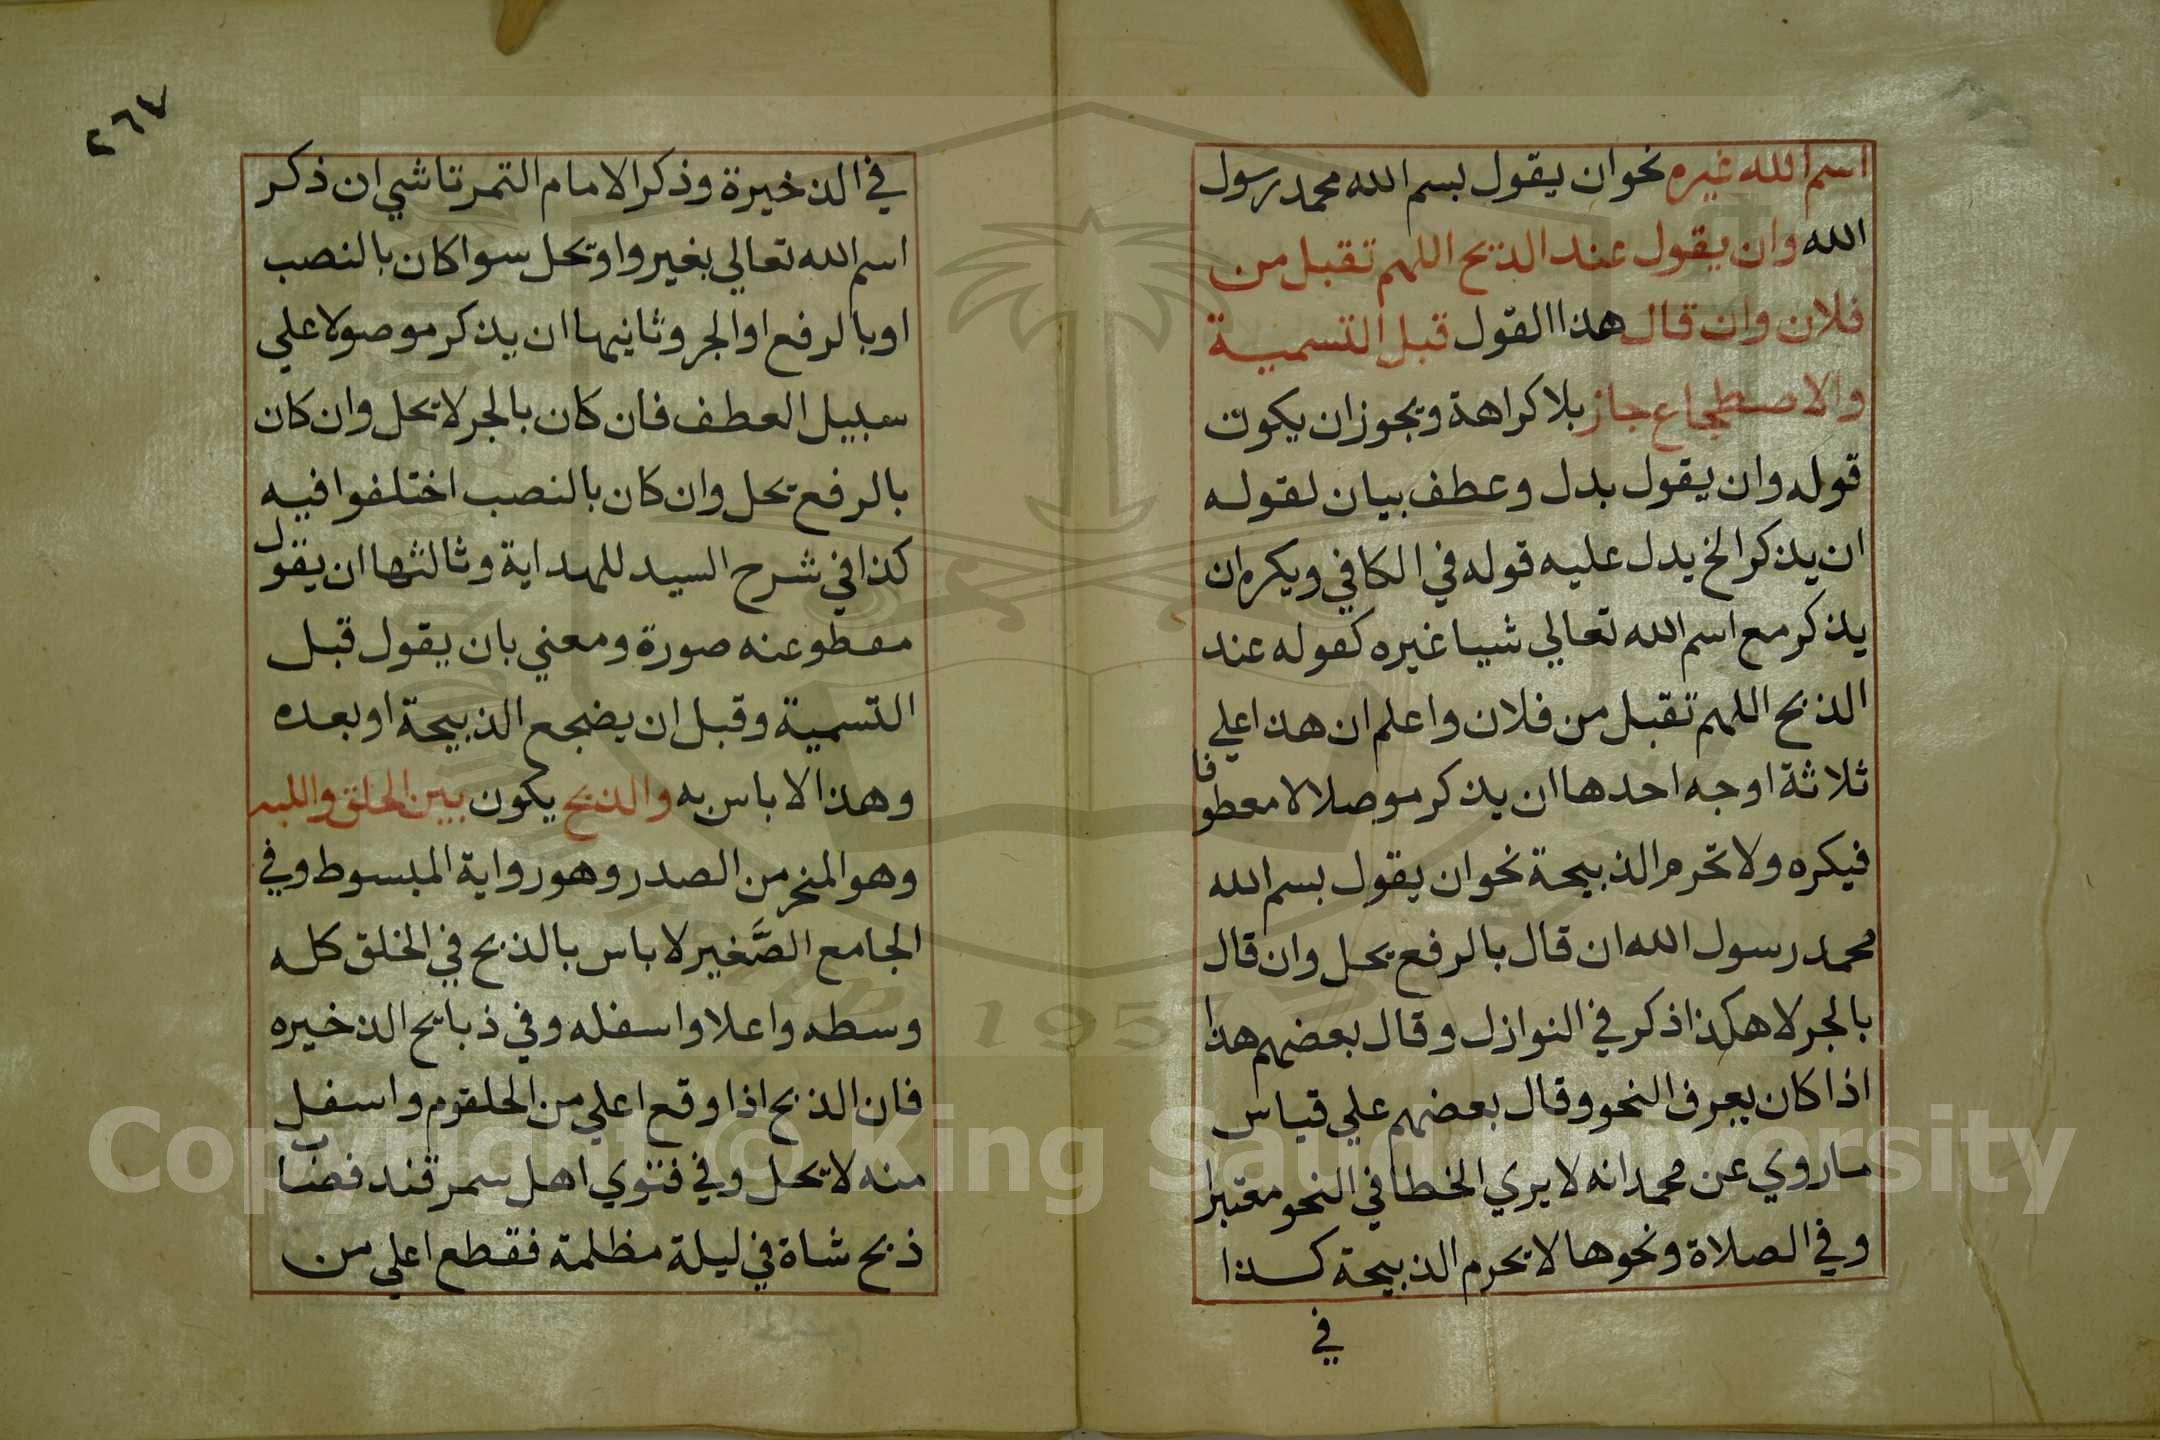 اسم الله غيره نحو ان يقول بسم الله محمد رسول
الله وان يقول عند الذبح اللهم تقبل من
فلان وان قال هذا القول قبل التسمية
والاضطجاع جاز بلا كراهة ويجوز ان يكون
قوله وان يقول بدل وعطف بيان لقوله
ان يذكر الخ يدل عليه قوله في الكافي ويكره ان
يذكر مع اسم الله تعالي شيا غيره كقوله عند
الذبح اللهم تقبل من فلان واعلم ان هذا علي
ثلاثة اوجه احدها ان يذكر موصلا لا معطوفا
فيكره ولا تحرم الذبيحة نحو ان يقول بسم الله
محمد رسول الله ان قال بالرفع يحل وان قال
بالجر لا هكذا ذكر في النوازل وقال بعضهم هذا
اذا كان يعرف النحو وقال بعضهم علي قياس
ما روي عن محمد انه لا يري الخطا في النحو معتبرا
وفي الصلاة ونحوها لا تحرم الذبيحة كذا
في
٢٦٧
في الذخيرة وذكر الامام التمرتاشي ان ذكر
اسم الله تعالي بغير واو يحل سوا كان بالنصب
او بالرفع او الجر وثانيها ان يذكر موصولا علي
سبيل العطف فان كان بالجر لا يحل وان كان
بالرفع يحل وان كان بالنصب اختلفوا فيه
كذا في شرح السيد للهداية وثالثها ان يقول
مقطوعنه صورة ومعني بان يقول قبل
التسمية وقبل ان يضجع الذبيحة او بعده
وهذا لا باس به والذبح يكون بين الحلق واللبه
وهو المنحر من الصدر وهو رواية المبسوط وفي
الجامع الصَّغير لا باس بالذبح في الخلق كله
وسطه واعلا واسفله وفي ذبايح الذخيره
فان الذبح اذا وقع اعلي من الحلقوم واسفل
منه لا يحل وفي فتوي اهل سمرقند قصاب
ذبح شاة في ليلة مظلمة فقطع اعلي من
Copyright © King Saud University
1957